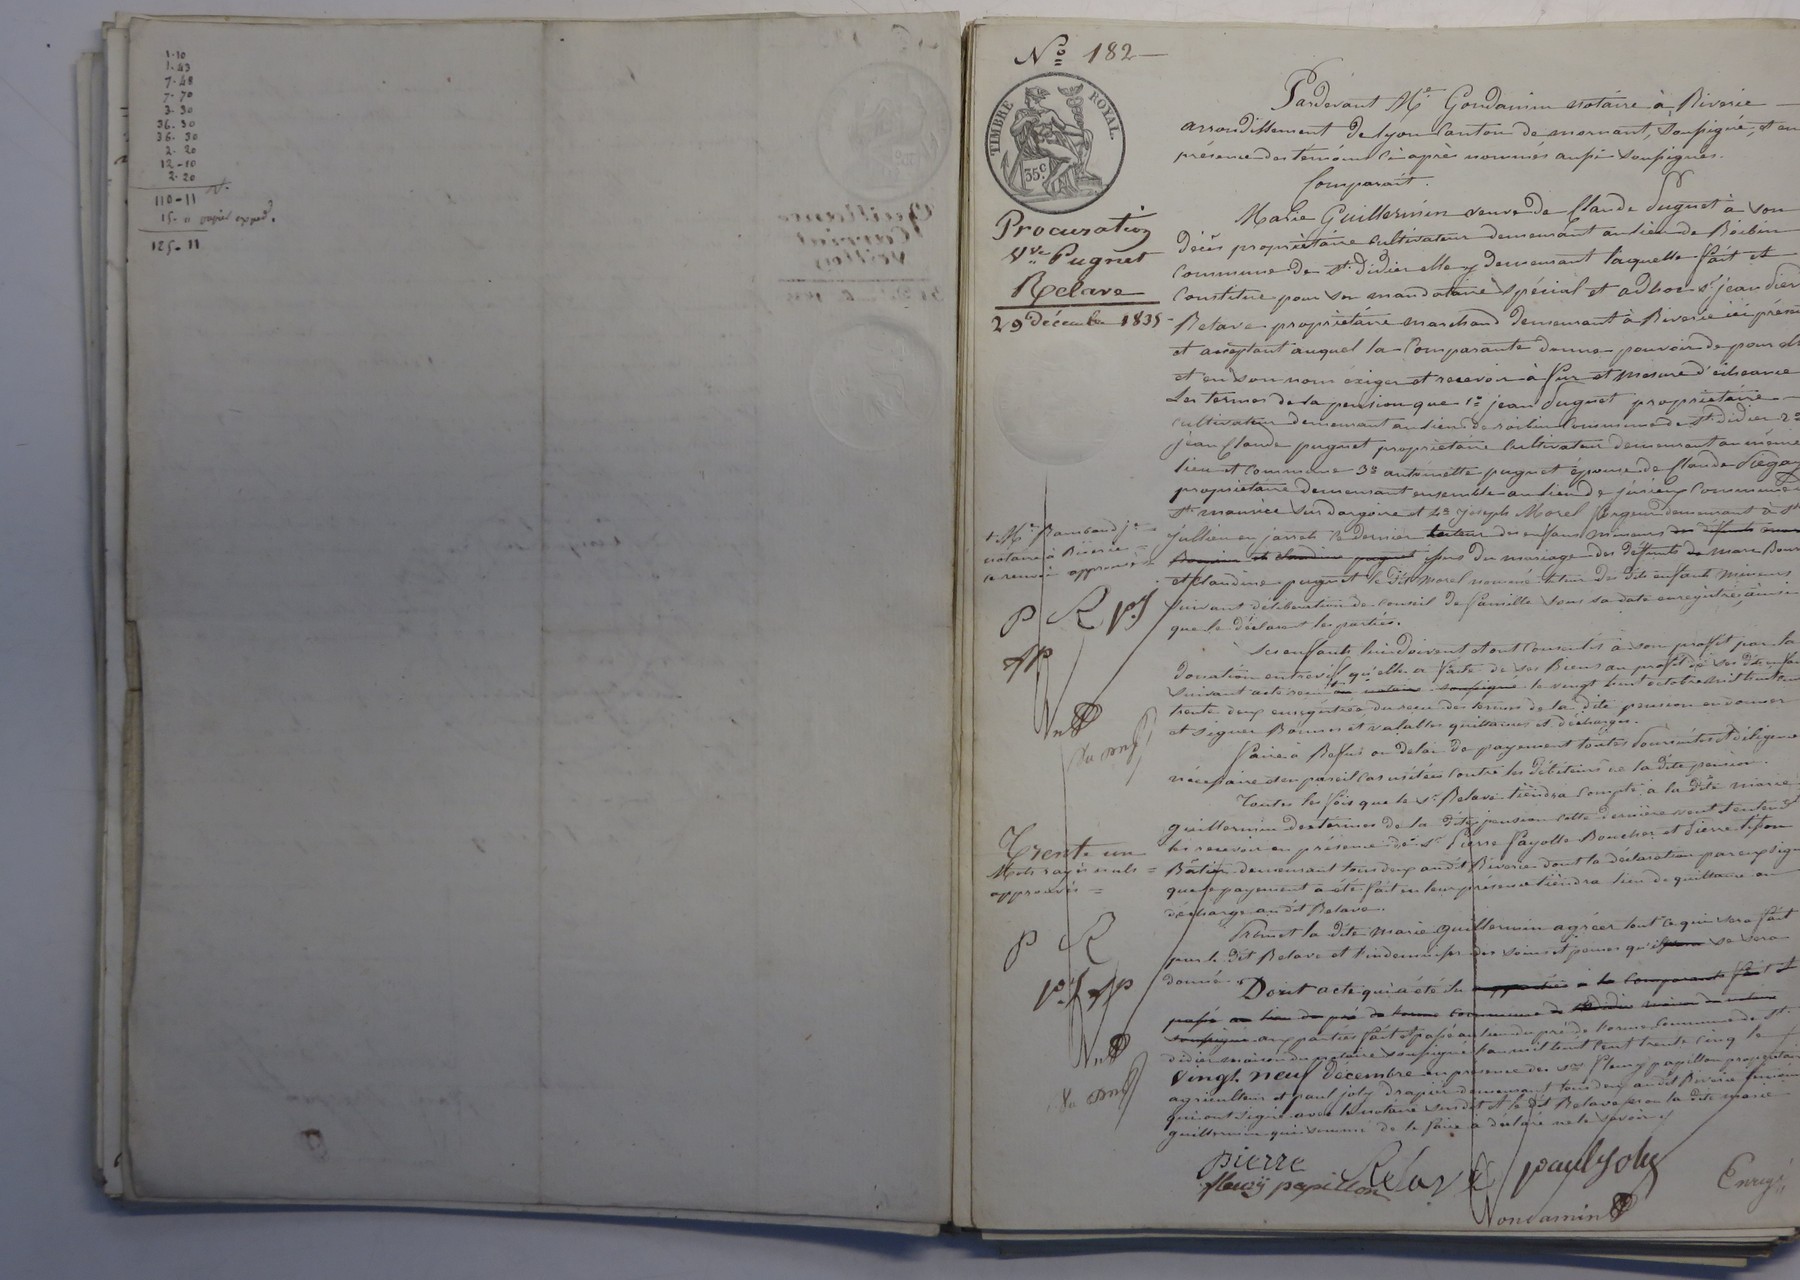 1-10
1-43
7-48
7-70
3-30
36-30
36-30
2-20
12-10
2-20
110-11
15-"
125-11
No 182
TIMBRE ROYAL
35c
Procuration
Vve Pugnet
Relave
29 décembre 1835
Pardevant Me Gondamin notaire à Riverie
arrondissement de Lyon canton de mornant, soussigné, et en
présence des témoins ci après nommés aussi soussignés.
Comparait.
Marie Guillermin veuve de Claude Pugnet à son
décès propriétaire cultivateur demeurant au lieu de
commune de St. Didier elle y demeurant laquelle fait et
constitue pour son mandataire spécial et adhoc sr jean pierre
Relave propriétaire marchand demeurant à Riverie ici présent
et acceptant auquel la Comparante donne pouvoir de pour elle
et en son nom éxiger et recevoir à fur et mesure d'écheance
Les termes de la pension que 1o jean pugnet propriétaire
cultivateur demeurant au lieu de commune de St didier 2o
jean Claude pugnet propriétaire cultivateur demeurant au même
lieu et commune 3o antoinette pugnet épouse de Claude
propriétaire demeurant ensemble au lieu de commune de
St maurice sur dargoire et 4o joseph Morel demeurant à St
jullien en jarret ce dernier tuteur des enfans mineurs
issus du mariage des défunts marc
et Claudine pugnet le dit Morel nommé tuteur des dits enfants mineurs
suivant délibération de conseil de famille sous sa date enregistrée, ainsi
que le déclarent les parties.
+ Me Rambaud jne
notaire à Riverie
ce renvoi approuvé
P R pJ
fp
Ses enfants lui doivent et ont consentis à son profit par la
donation entrevif qu'elle a faite de ses Biens au profit de ses dits enfans
suivant acte reçu au notaire soussigné le vingt huit octobre mil huit cent
trente deux enregistrée du reçu des termes de la dite pension en donner
et signer Bonnes et valables quittances et décharges.
faire à Refus ou délai de payement toutes poursuites et diligences
nécessaires et en pareil cas usitées contre les débiteurs de la dite pension.
Toutes les fois que le sr Relave tiendra compte à la dite marie
guillermin des termes de la dite pension cette dernière veut et entend
les recevoir en présence des srs Pierre fayolle Boucher et pierre
Bâtier demeurant tous deux au dit Riverie dont la déclaration par eux signée
que le payement a été fait en leur présence tiendra lieu de quittance ou
décharge au dit Relave.
Trente un
Mots rayés nuls
approuvés
P R
pJ fp
Promet la dite marie guillermin agréer tout ce qui sera fait
par le dit Relave et l'indemniser des soins et peines qu'il se sera
donné.
Dont acte qui a été lu à la comparante fait et
passé au lieu du pré de commune de
soussigné aux parties fait et passé au lieu du pré de commune de St
didier maison du notaire soussigné l'an mil huit cent trente cinq le
vingt neuf décembre en presence des srs fleury papillon propriétaire
agriculteur et paul joly drapier demeurant tous deux au dit Riverie témoins
qui ont signé avec le notaire susdit et le dit Relave non la dite marie
guillermin qui sommé de le faire a déclaré ne le savoir
pierre Relave pauljoly
fleury papillon
Gondamin
Enregé